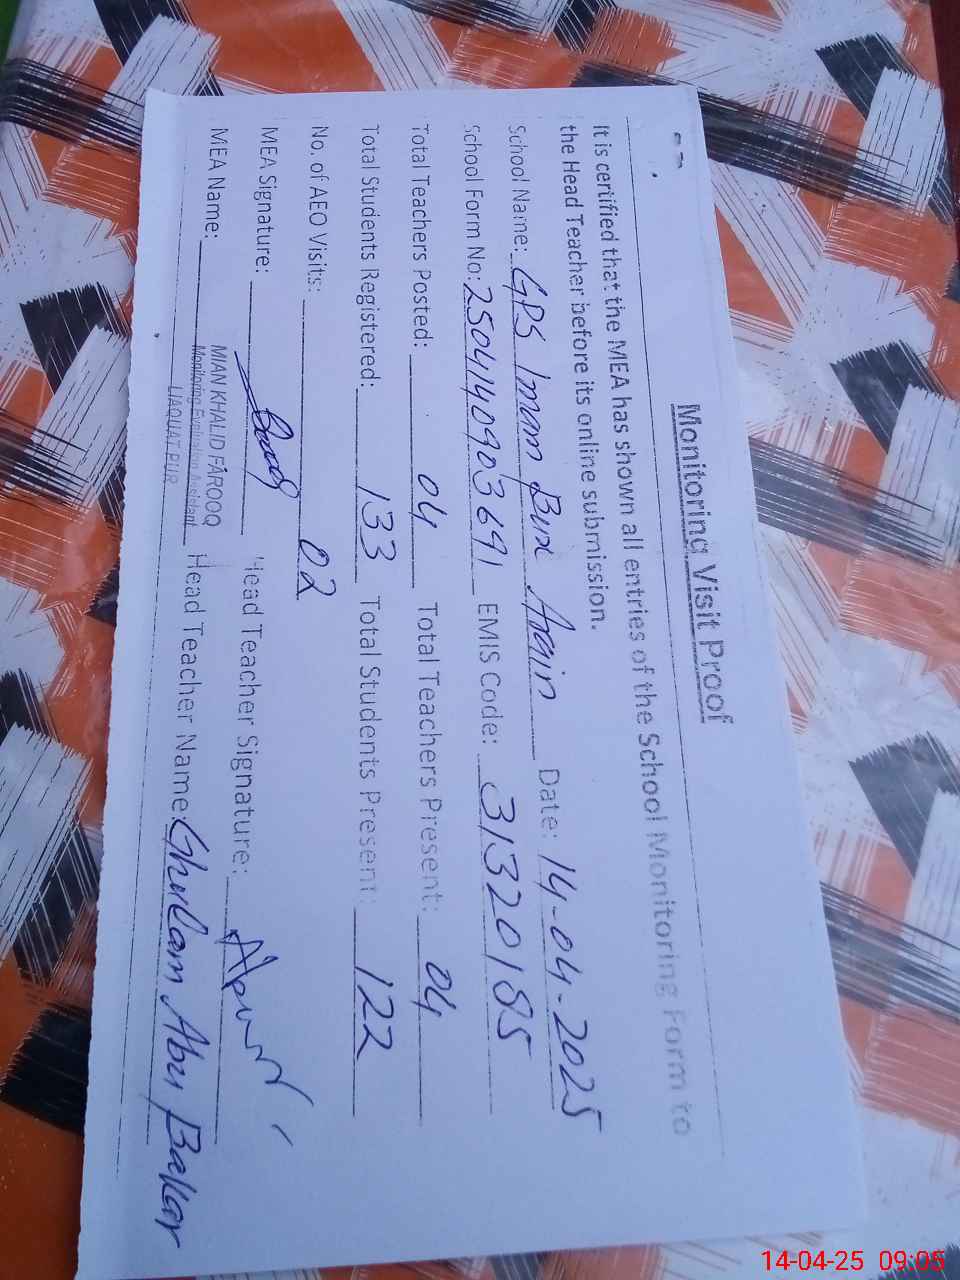 Monitoring Visit Proof
It is certified that the MEA has shown all entries of the School Monitoring Form to
the Head Teacher before its online submission.
School Name: GPS Imam Bux Arain Date: 14-04-2025
School Form No: 250414090903691 EMIS Code: 31320185
Total Teachers Posted: 04 Total Teachers Present: 04
Total Students Registered: 133 Total Students Present: 122
No. of AEO Visits: 02
MEA Signature: Head Teacher Signature:
MEA Name: MIAN KHALID FAROOQ Head Teacher Name: Ghulam Abu Bakar
Monitoring Evaluation Assistant
LIAQUAT PUR
14-04-25 09:05